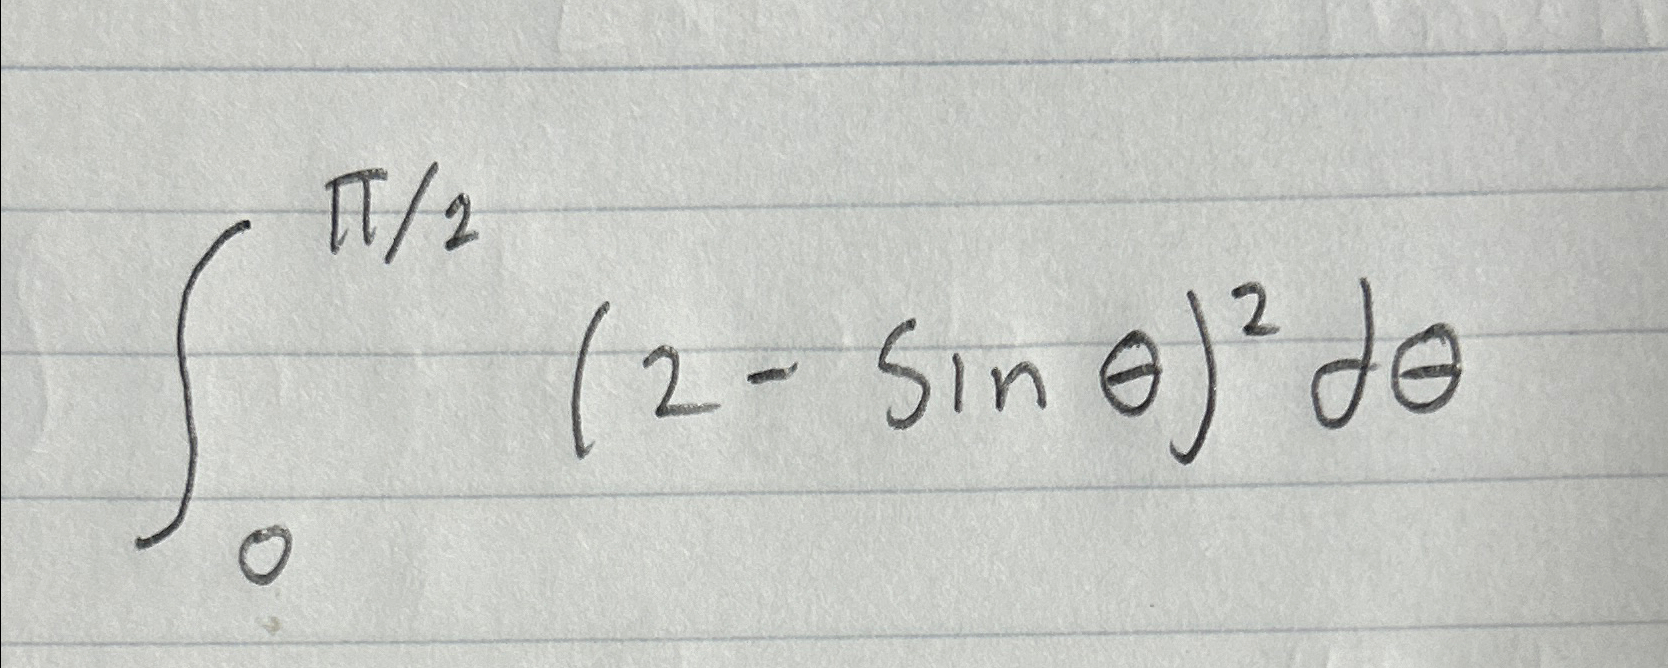 ∫₀^π/2 (2 - sin θ)² dθ